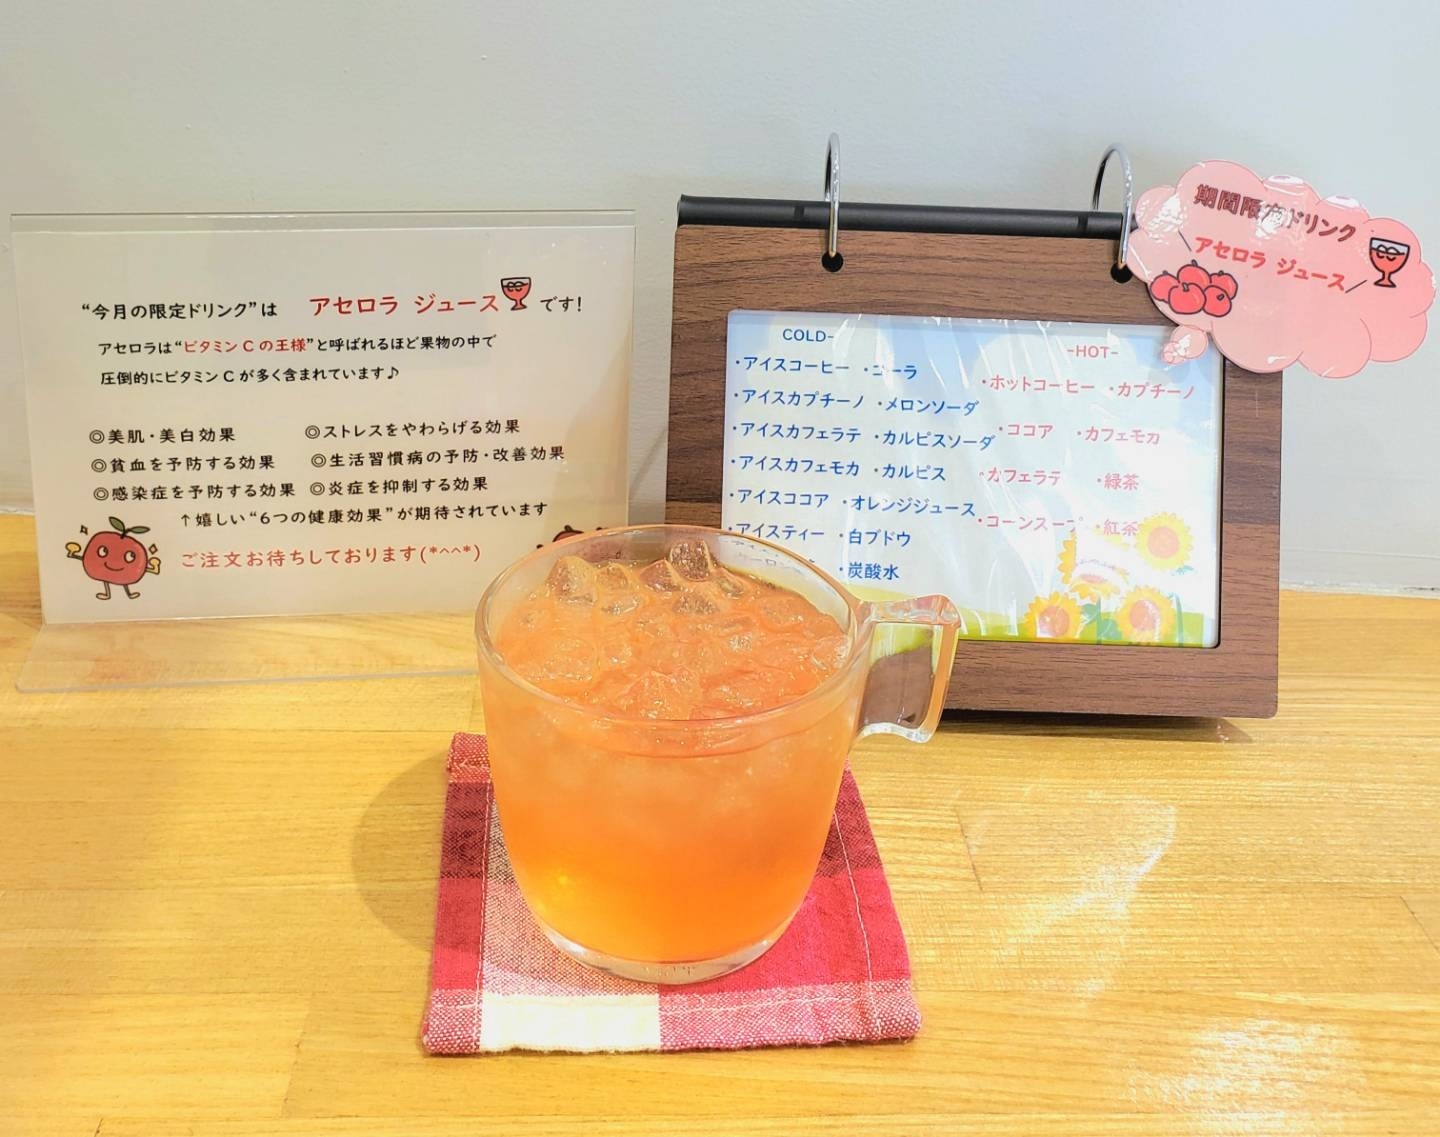 “今月の限定ドリンク”は アセロラ ジュース です!
アセロラは“ビタミン C の王様”と呼ばれるほど果物の中で
圧倒的にビタミン C が多く含まれています♪
◎美肌・美白効果 ◎ストレスをやわらげる効果
◎貧血を予防する効果 ◎生活習慣病の予防・改善効果
◎感染症を予防する効果 ◎炎症を抑制する効果
↑嬉しい“6つの健康効果”が期待されています
ご注文お待ちしております(*^^*)
期間限定ドリンク
アセロラ ジュース
COLD-
・アイスコーヒー ・コーラ
・アイスカプチーノ ・メロンソーダ
・アイスカフェラテ ・カルピスソーダ
・アイスカフェモカ ・カルピス
・アイスココア ・オレンジジュース
・アイスティー ・白ブドウ
・炭酸水
-HOT-
・ホットコーヒー ・カプチーノ
・ココア ・カフェモカ
・カフェラテ ・緑茶
・コーンスープ ・紅茶